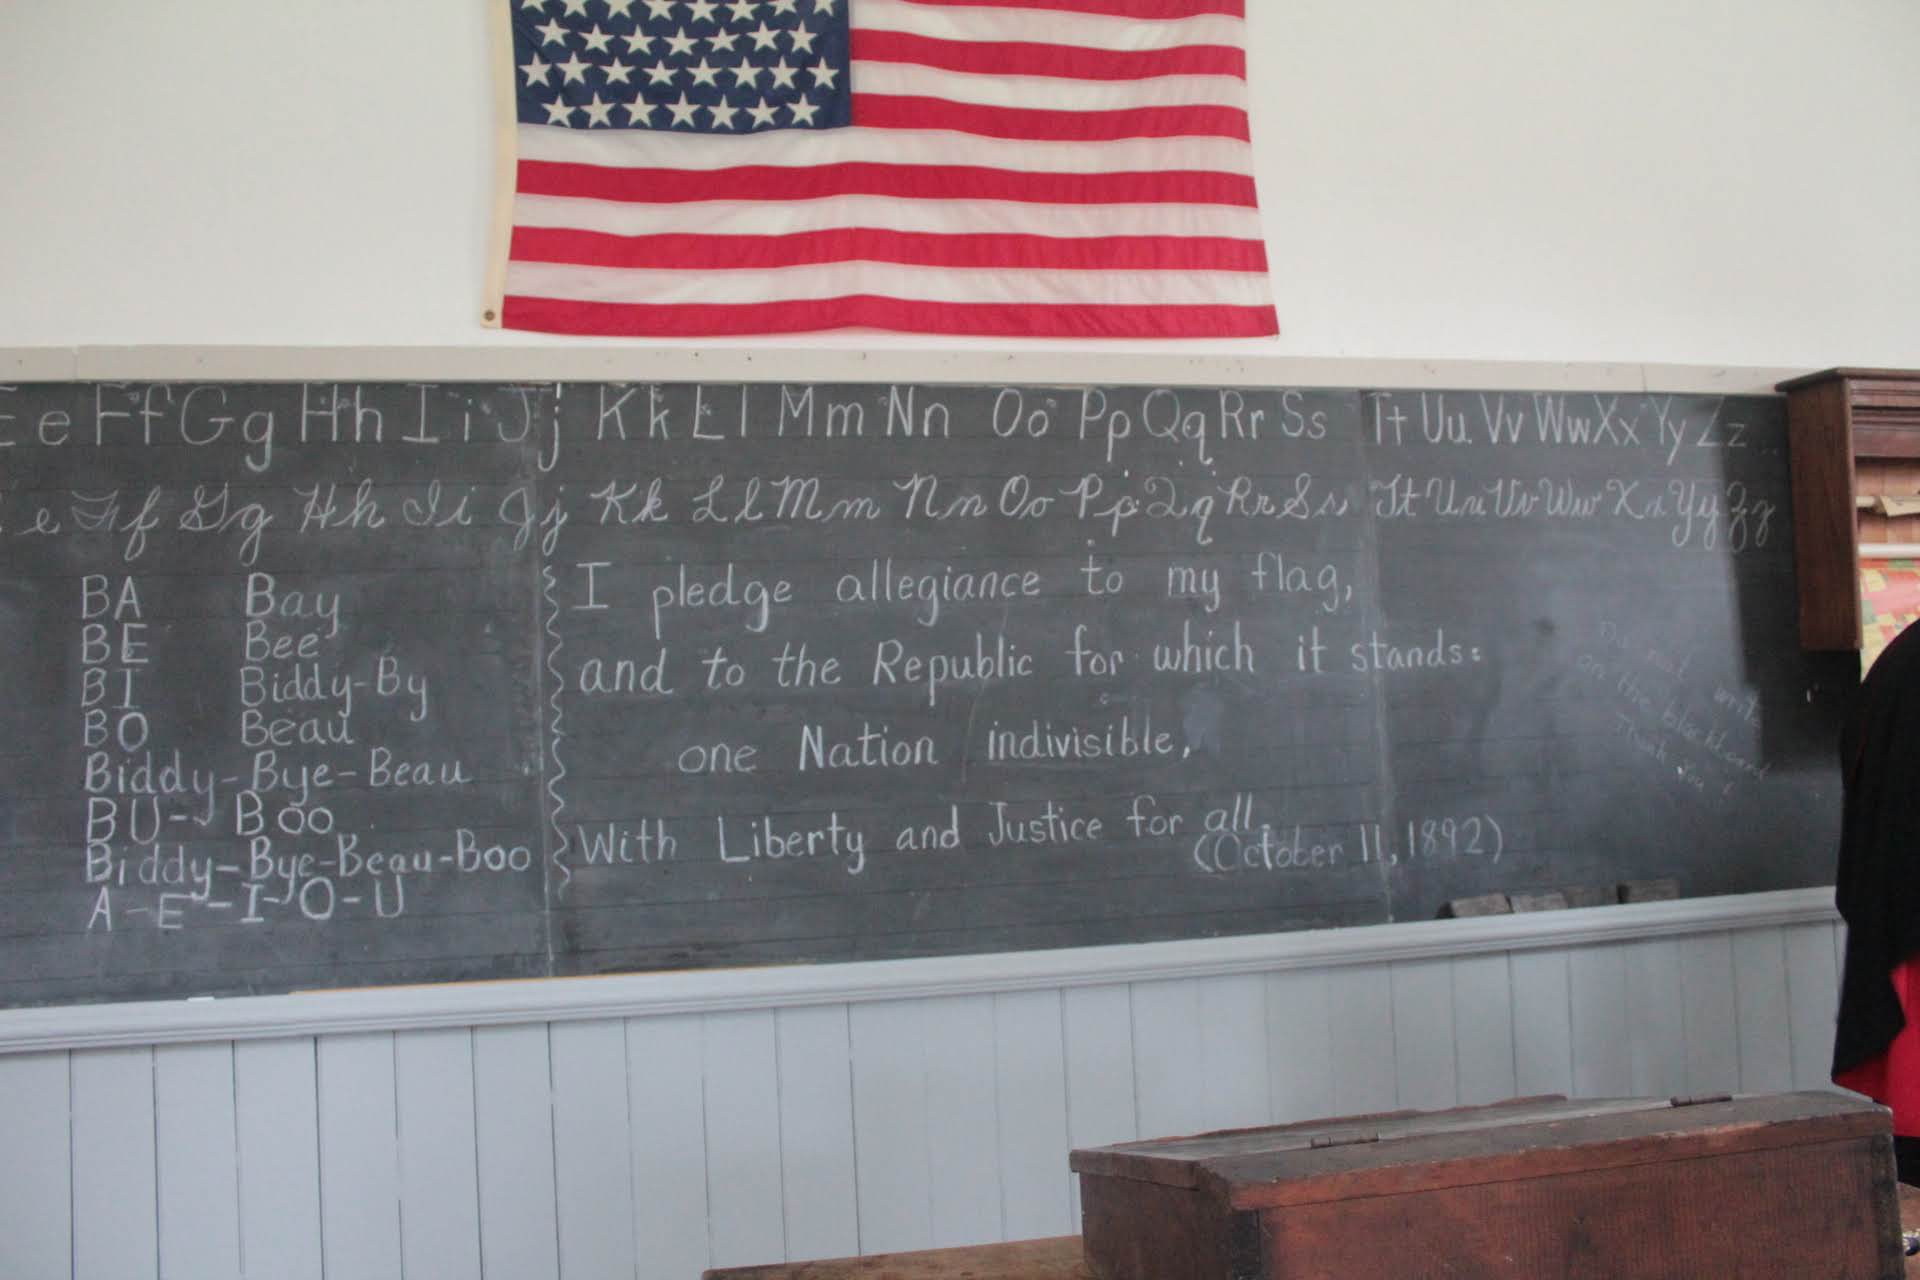 E e Ff Gg Hh Ii Jj Kk Ll Mm Nn Oo Pp Qq Rr Ss Tt Uu Vv Ww Xx Yy Zz
e Ff Gg Hh Ii Jj Kk Ll Mm Nn Oo Pp Qq Rr Ss Tt Uu Vv Ww Xx Yy Zz
BA Bay
BE Bee
BI Biddy-By
BO Beau
Biddy-Bye-Beau
BU- Boo
Biddy-Bye-Beau-Boo
A-E-I-O-U
I pledge allegiance to my flag,
and to the Republic for which it stands:
one Nation indivisible,
With Liberty and Justice for all.
(October 11, 1892)
Do not write
on the blackboard
Thank you